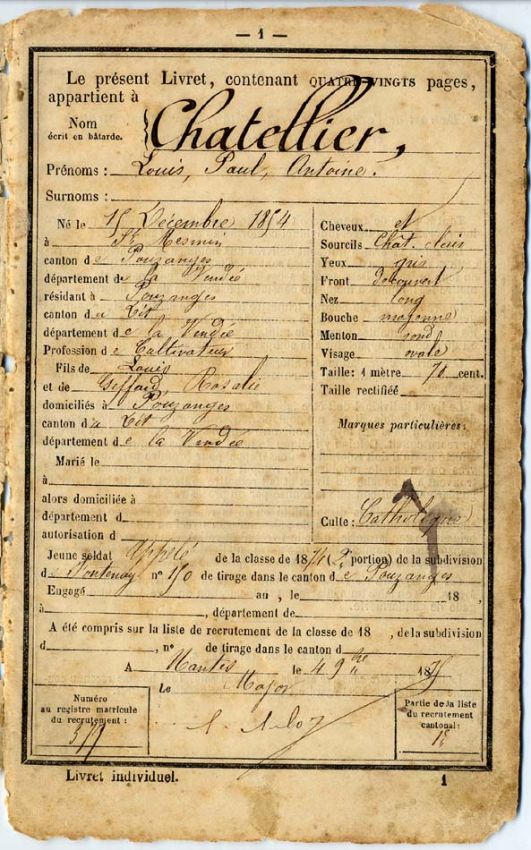 — 1 —
Le présent Livret, contenant QUATRE-VINGTS pages,
appartient à
Nom
écrit en bâtarde.
Chatellier,
Prénoms : Louis, Paul, Antoine.
Surnoms :
Né le 15 Décembre 1854
à St Mesmin
canton de Pouzanges
département de la Vendée
résidant à Pouzanges
canton du dit
département de la Vendée
Profession de Cultivateur
Fils de Louis
et de Giffard, Rosalie
domiciliés à Pouzanges
canton du dit
département de la Vendée
Marié le
à
alors domiciliée à
département d
autorisation d
Cheveux et
Sourcils Chat. clairs
Yeux gris
Front découvert
Nez long
Bouche moyenne
Menton rond
Visage ovale
Taille: 1 mètre 70 cent.
Taille rectifiée
Marques particulières:
Culte: Catholique
Jeune soldat appelé de la classe de 1874 (2e portion) de la subdivision
de Fontenay n° 150 de tirage dans le canton de Pouzanges
Engagé au , le 18 ,
à , département de
A été compris sur la liste de recrutement de la classe de 18 , de la subdivision
d , n° de tirage dans le canton d
A Nantes le 4 9bre 1875
Le Major
Numéro
au registre matricule
du recrutement :
Partie de la liste
du recrutement
cantonal:
Livret individuel.
1